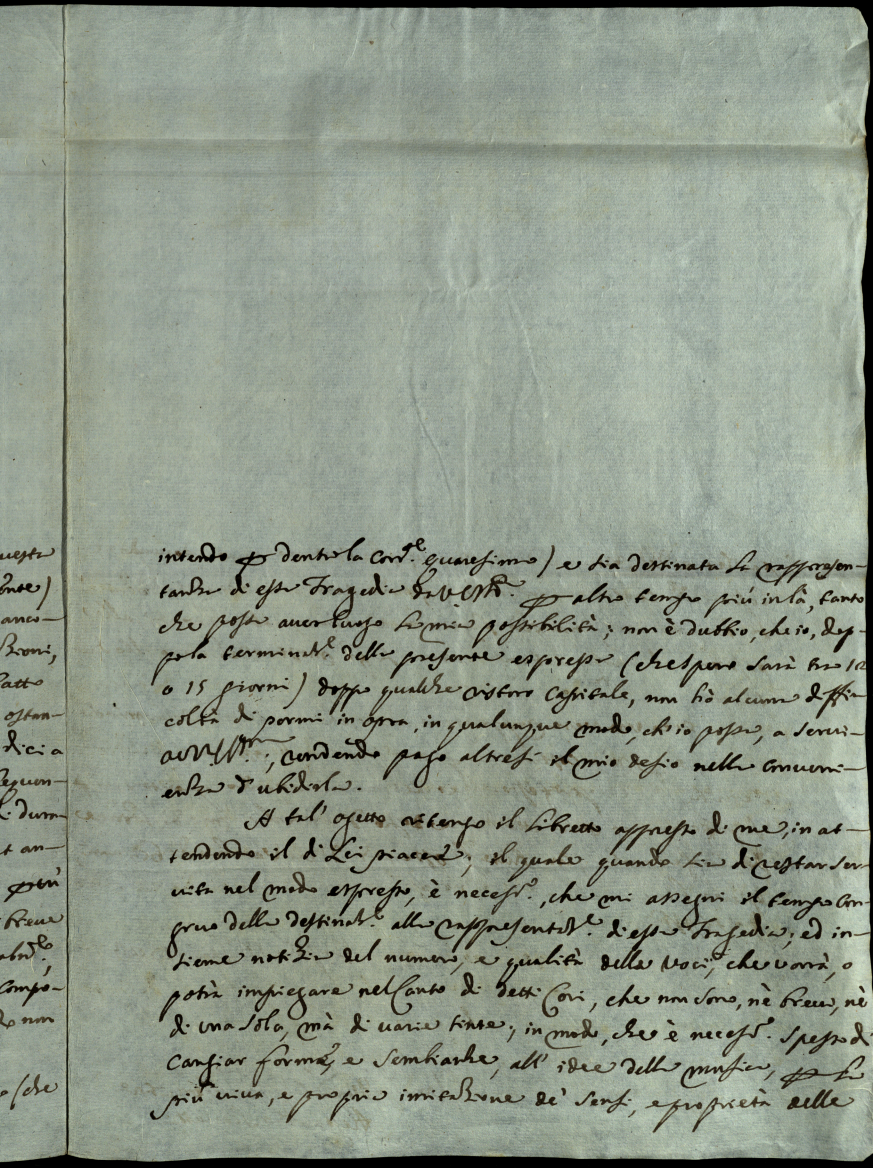 uesta
ente)
anco-
zioni,
atto
ostan-
dici a
equen-
i dura
t an-
più
breve
Compo-
do non
o (che
intendo p dentro la corr.e quaresima) e sia destinata la rappresen-
tanza di essa Tragedia da V.S. Ill.ma p altro tempo più in là, tanto
che possa aver luogo la mia possibilità; non è dubbio, che io, dop-
po la terminaz.e della presente espressa (che spero sarà tra 12
o 15 giorni) doppo qualche ristoro Capitale, non hò alcuna diffi-
coltà di pormi in opra, in qualunque modo, ch'io possa, a servi-
a V.S. Ill.ma; rendendo pago altresì il mio desio nella conveni-
enza d'ubidirla.
A tal' ogetto ritengo il Libretto appresso di me, in at-
tendendo il di Lei piacere; il quale quando sia di restar ser-
vita nel modo espresso, è necess.o, che mi assegni il tempo con-
gruo della destinaz.e alla rappresentaz.e di essa Tragedia; ed in-
sieme notizia del numero, e qualità delle Voci, che vorrà, o
potrà impiegare nel Canto di detti Cori, che non sono, nè brevi, nè
di una sola, mà di varie tinte; in modo, che è necess.o spesso di
cangiar forma, e sembianze, all' idee della musica, p la
più viva, e propria imitazione de' sensi, e proprietà delle